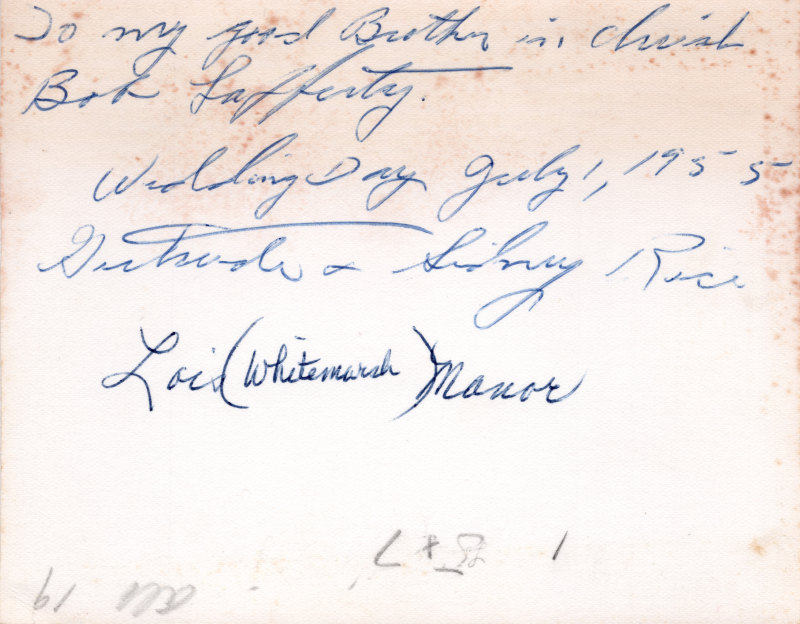 To my good Brother in Christ
Bob Lafferty.
Wedding Day July 1, 1955
Gertrude & Sidney Rice
Lois (Whitemarsh) Manor